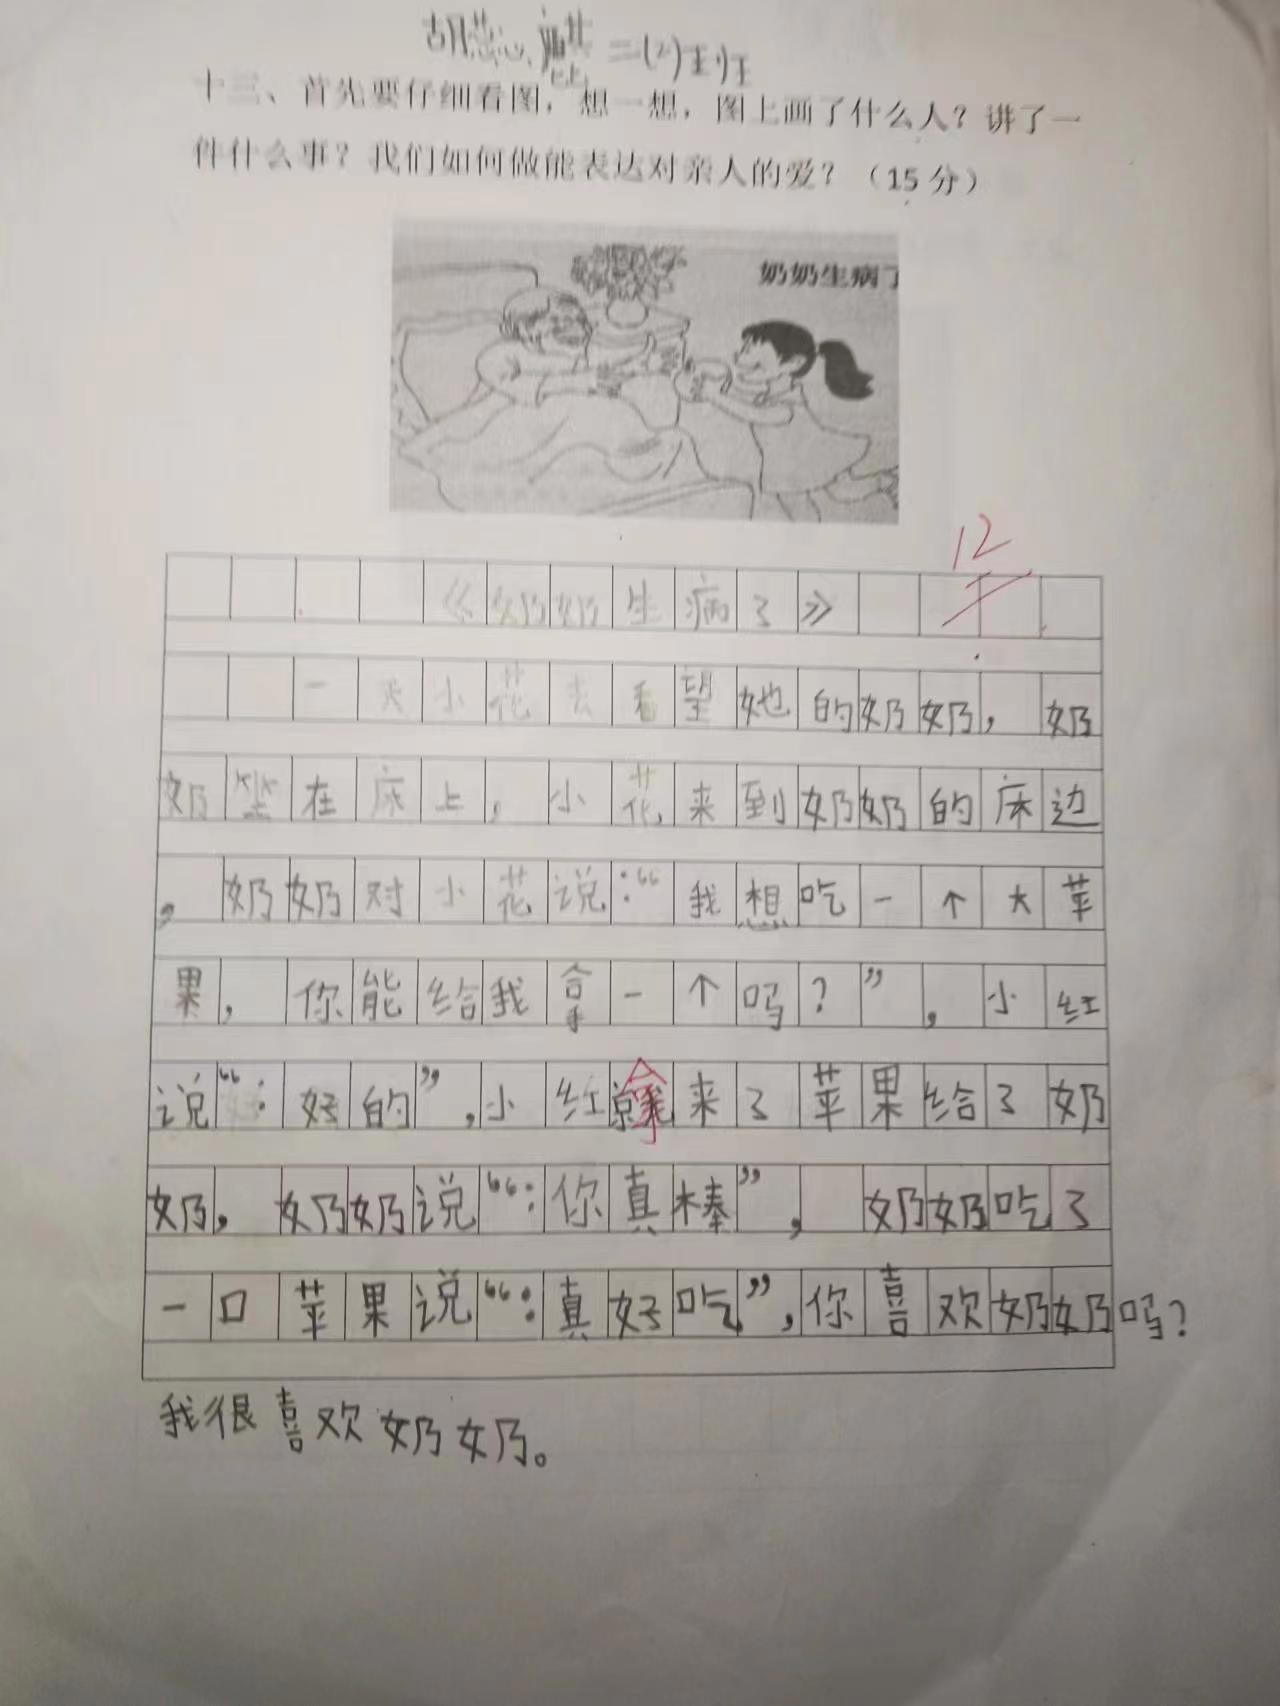 胡蕊 二(2)班
十三、首先要仔细看图，想一想，图上画了什么人？讲了一
件什么事？我们如何做能表达对亲人的爱？（15分）
奶奶生病了
12
《奶奶生病了》
一天小花去看望她的奶奶，奶
奶坐在床上，小花来到奶奶的床边
，奶奶对小花说：“我想吃一个大苹
果，你能给我拿一个吗？”，小红
说“：好的”，小红拿来了苹果给了奶
奶，奶奶说“：你真棒”，奶奶吃了
一口苹果说“：真好吃”，你喜欢奶奶吗？
我很喜欢奶奶。